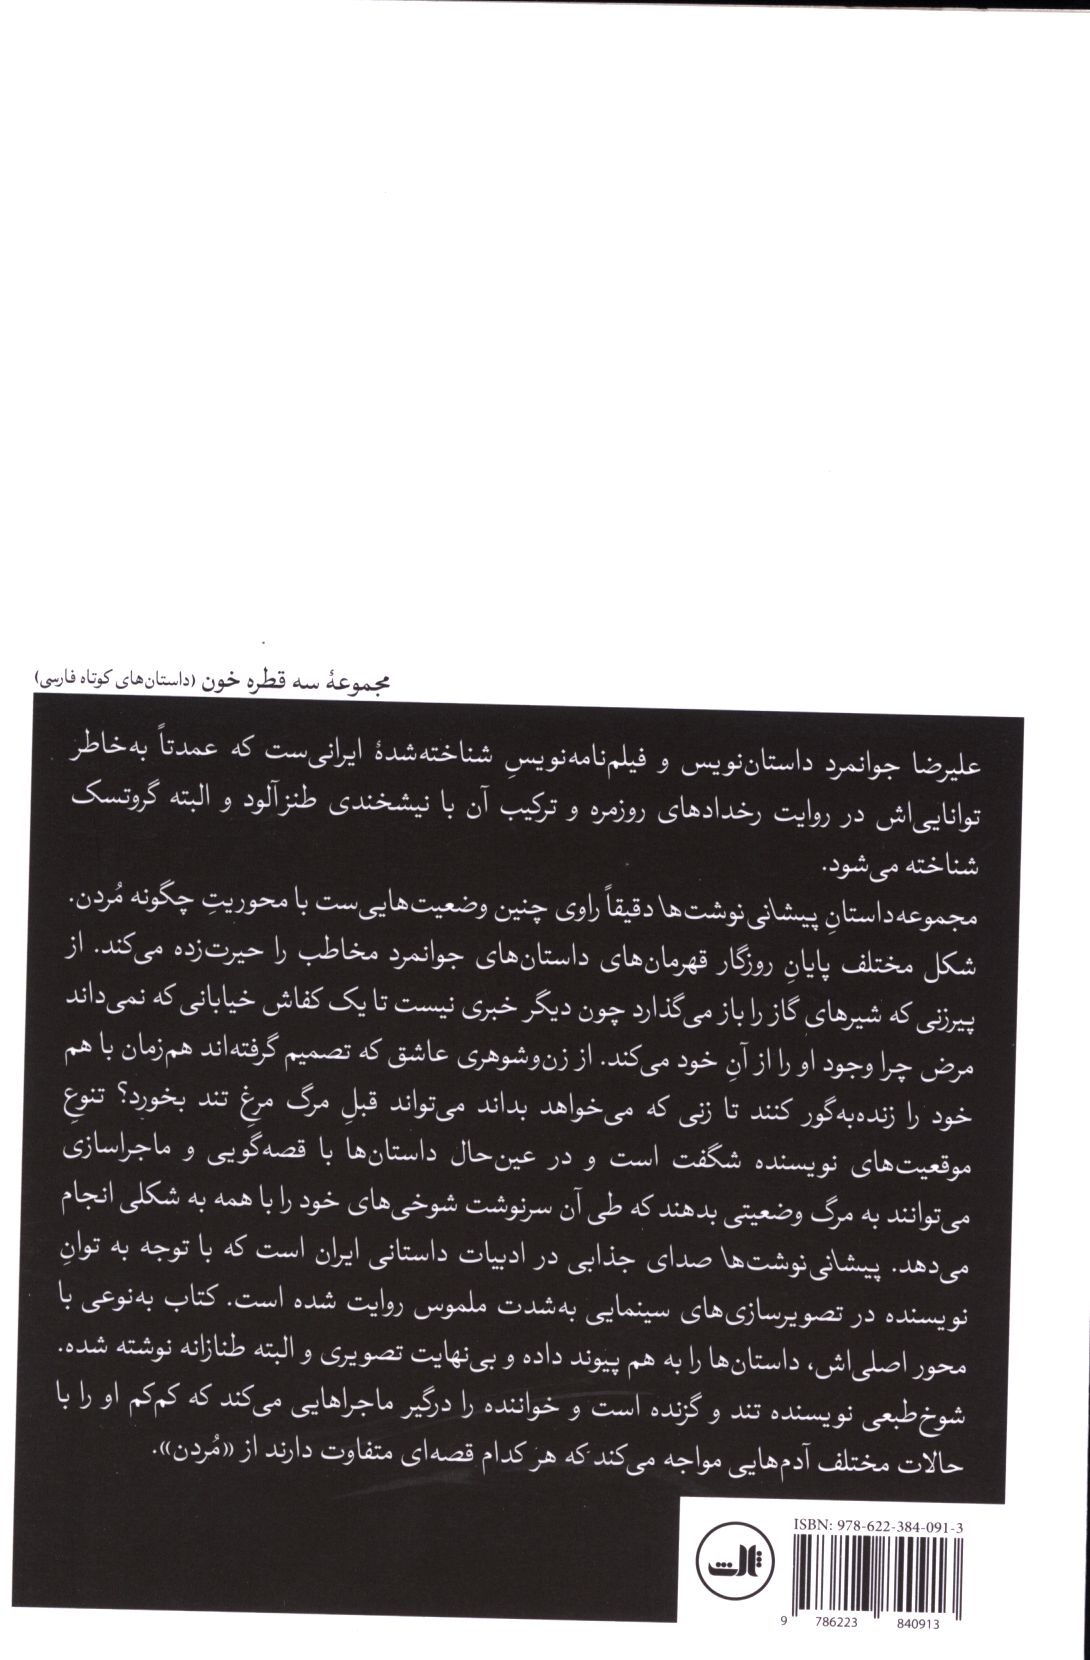 مجموعهٔ سه قطره خون (داستان‌های کوتاه فارسی)
علیرضا جوانمرد داستان‌نویس و فیلم‌نامه‌نویسِ شناخته‌شدهٔ ایرانی‌ست که عمدتاً به‌خاطر
توانایی‌اش در روایت رخدادهای روزمره و ترکیب آن با نیشخندی طنزآلود و البته گروتسک
شناخته می‌شود.
مجموعه‌داستانِ پیشانی‌نوشت‌ها دقیقاً راوی چنین وضعیت‌هایی‌ست با محوریتِ چگونه مُردن.
شکل مختلف پایانِ روزگار قهرمان‌های داستان‌های جوانمرد مخاطب را حیرت‌زده می‌کند. از
پیرزنی که شیرهای گاز را باز می‌گذارد چون دیگر خبری نیست تا یک کفاش خیابانی که نمی‌داند
مرض چرا وجود او را از آنِ خود می‌کند. از زن‌وشوهری عاشق که تصمیم گرفته‌اند هم‌زمان با هم
خود را زنده‌به‌گور کنند تا زنی که می‌خواهد بداند می‌تواند قبلِ مرگ مرغِ تند بخورد؟ تنوعِ
موقعیت‌های نویسنده شگفت است و در عین‌حال داستان‌ها با قصه‌گویی و ماجراسازی
می‌توانند به مرگ وضعیتی بدهند که طی آن سرنوشت شوخی‌های خود را با همه به شکلی انجام
می‌دهد. پیشانی‌نوشت‌ها صدای جذابی در ادبیات داستانی ایران است که با توجه به توانِ
نویسنده در تصویرسازی‌های سینمایی به‌شدت ملموس روایت شده است. کتاب به‌نوعی با
محور اصلی‌اش، داستان‌ها را به هم پیوند داده و بی‌نهایت تصویری و البته طنازانه نوشته شده.
شوخ‌طبعی نویسنده تند و گزنده است و خواننده را درگیر ماجراهایی می‌کند که کم‌کم او را با
حالات مختلف آدم‌هایی مواجه می‌کند که هر کدام قصه‌ای متفاوت دارند از «مُردن».
ISBN: 978-622-384-091-3
ثالث
9 786223 840913